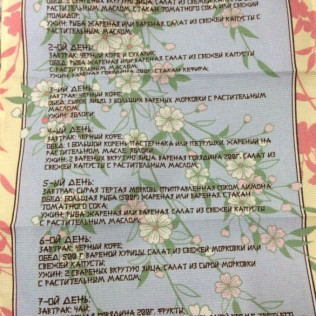 РАСТИТЕЛЬНЫМ МАСЛОМ, СТАКАН ТОМАТНОГО СОКА ИЛИ СВЕЖИЙ
ПОМИДОР;
УЖИН: РЫБА ЖАРЕНАЯ ИЛИ ВАРЕНАЯ САЛАТ ИЗ СВЕЖЕЙ КАПУСТЫ С
РАСТИТЕЛЬНЫМ МАСЛОМ.
2-ОЙ ДЕНЬ:
ЗАВТРАК: ЧЕРНЫЙ КОФЕ И СУХАРИК.
ОБЕД: РЫБА ЖАРЕНАЯ ИЛИ ВАРЕНАЯ САЛАТ ИЗ СВЕЖЕЙ КАПУСТЫ
С РАСТИТЕЛЬНЫМ МАСЛОМ;
УЖИН: ВАРЕНАЯ ГОВЯДИНА 200Г. СТАКАН КЕФИРА;
3-ИЙ ДЕНЬ:
ЗАВТРАК: ЧЕРНЫЙ КОФЕ;
ОБЕД: СЫРОЕ ЯЙЦО 3 БОЛЬШИХ ВАРЕНЫХ МОРКОВКИ С РАСТИТЕЛЬНЫМ
МАСЛОМ;
УЖИН: ЯБЛОКИ
4-ЫЙ ДЕНЬ:
ЗАВТРАК: ЧЕРНЫЙ КОФЕ;
ОБЕД: 1 БОЛЬШОЙ КОРЕНЬ ПАСТЕРНАКА ИЛИ ПЕТРУШКИ, ЖАРЕНЫЙ НА
РАСТИТЕЛЬНОМ МАСЛЕ, ЯБЛОКИ;
УЖИН: 2 ВАРЕНЫХ ВКРУТУЮ ЯЙЦА, ВАРЕНАЯ ГОВЯДИНА 200Г, САЛАТ ИЗ
СВЕЖЕЙ КАПУСТЫ С РАСТИТЕЛЬНЫМ МАСЛОМ.
5-ЫЙ ДЕНЬ:
ЗАВТРАК: СЫРАЯ ТЕРТАЯ МОРКОВЬ, ПРИПРАВЛЕННАЯ СОКОМ ЛИМОНА
ОБЕД: БОЛЬШАЯ РЫБА (500Г) ЖАРЕНАЯ ИЛИ ВАРЕНАЯ СТАКАН
ТОМАТНОГО СОКА;
УЖИН: РЫБА ЖАРЕНАЯ ИЛИ ВАРЕНАЯ САЛАТ ИЗ СВЕЖЕЙ КАПУСТЫ С
РАСТИТЕЛЬНЫМ МАСЛОМ
6-ОЙ ДЕНЬ:
ЗАВТРАК: ЧЕРНЫЙ КОФЕ;
ОБЕД: 500 Г ВАРЕНОЙ КУРИЦЫ, САЛАТ ИЗ СВЕЖЕЙ МОРКОВКИ ИЛИ
СВЕЖЕЙ КАПУСТЫ;
УЖИН: 2 СВАРЕНЫХ ВКРУТУЮ ЯЙЦА, САЛАТ ИЗ СЫРОЙ МОРКОВКИ
С РАСТИТЕЛЬНЫМ МАСЛОМ.
7-ОЙ ДЕНЬ:
ЗАВТРАК: ЧАЙ;
ГОВЯДИНА 200Г, ФРУКТЫ;